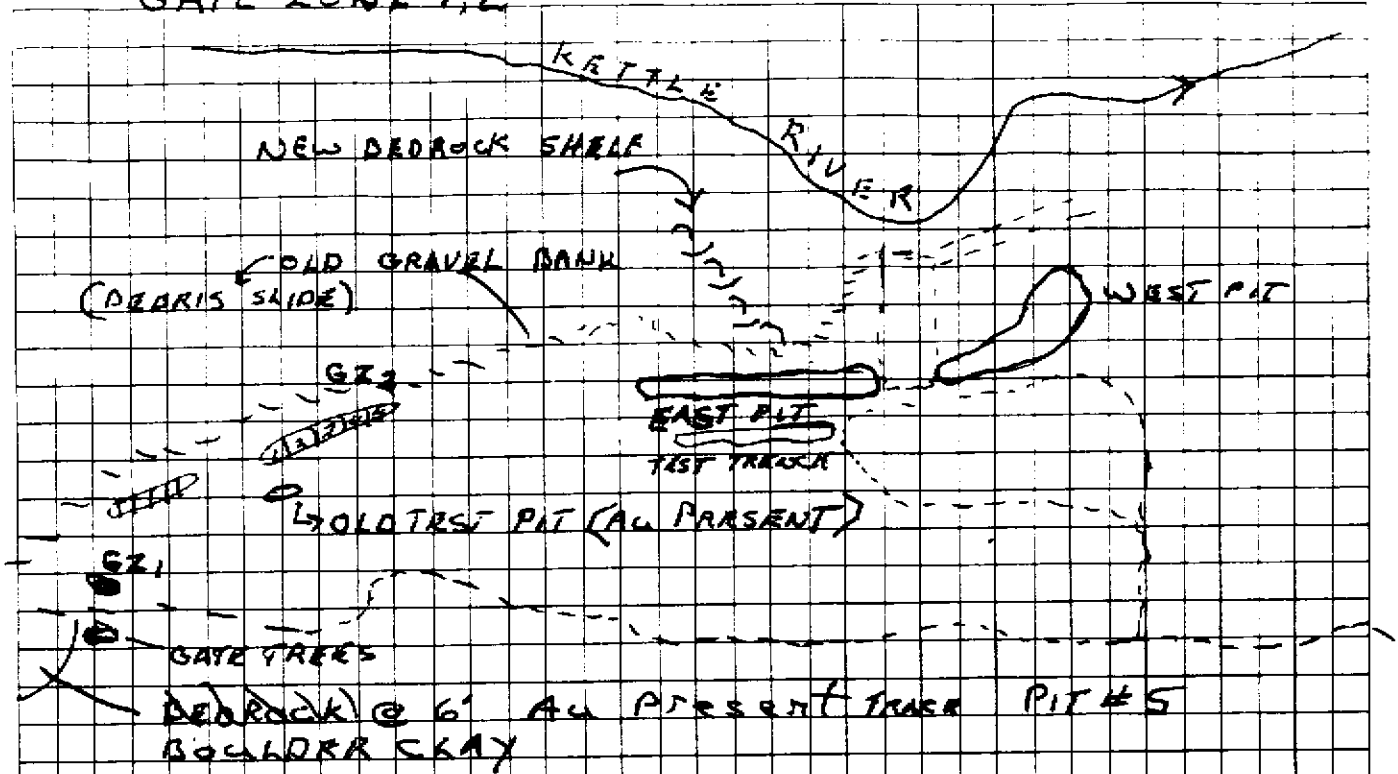 GATE ZONE 1,2
KETTLE RIVER
NEW BEDROCK SHELF
OLD GRAVEL BANK
(DEBRIS SLIDE)
WEST PIT
GZ2
EAST PIT
TEST TRENCH
1 2 3 4 5
OLD TEST PIT (Au PRESENT)
GZ1
GATE TREES
BEDROCK @ 6' Au Present TRACE PIT #5
BOULDER CLAY